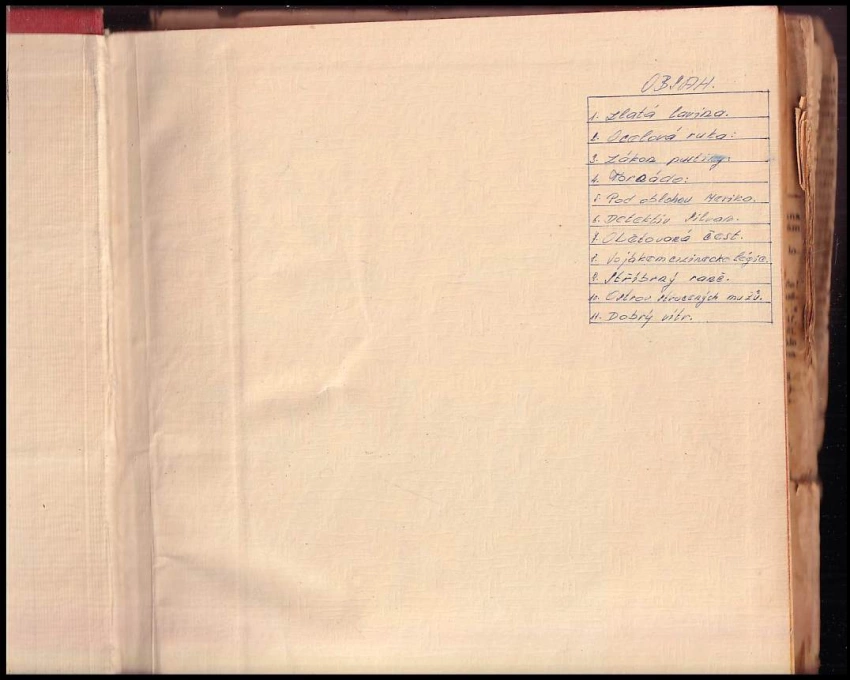 OBSAH.
1. Zlatá lavina.
2. Ocelová ruka:
3. Zákon pustiny.
4. Tornádo:
5. Pod oblohou Mexika.
6. Detektiv Silvan.
7. Obětovaná čest.
8. Voják cizinecké légia.
9. Stříbrný ranč.
10. Ostrov ztracených mužů.
11. Dobrý vítr.